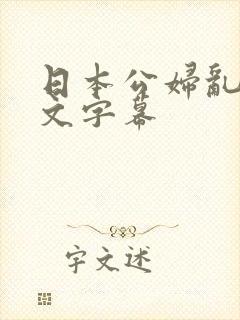 日本公婦亂
文字幕
宇文述